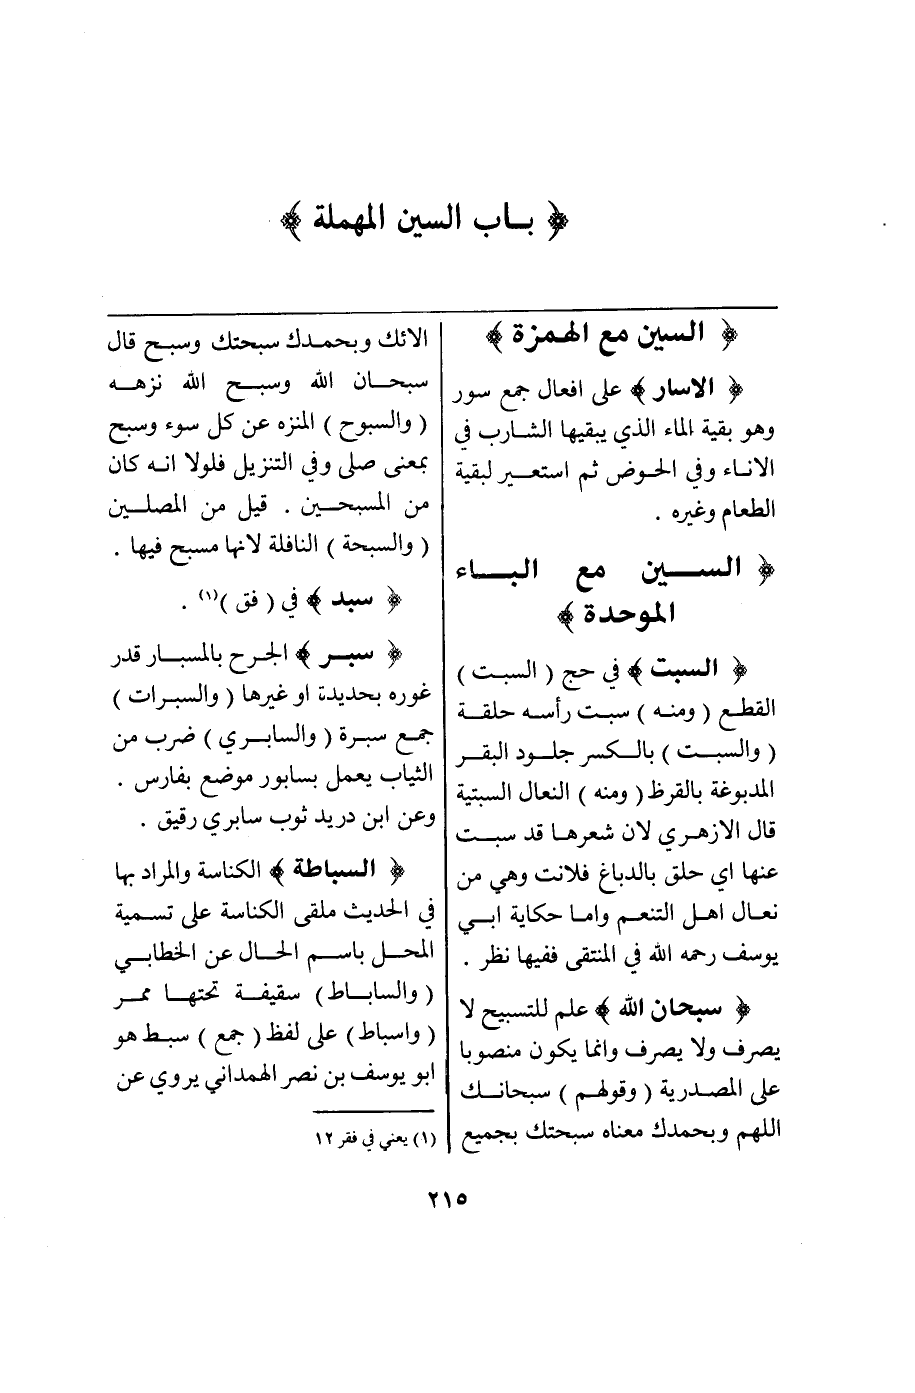 ﴿ بـاب السين المهملة ﴾
﴿ السين مع الهمزة ﴾
﴿ الاسار ﴾ على افعال جمع سور
وهو بقية الماء الذي يبقيها الشارب في
الاناء وفي الحوض ثم استعير لبقية
الطعام وغيره .
﴿ السين مع الباء
الموحدة ﴾
﴿ السبت ﴾ في حج ( السبت )
القطع ( ومنه ) سبت رأسه حلقة
( والسبت ) بالكسر جلود البقر
المدبوغة بالقرظ ( ومنه ) النعال السبتية
قال الازهري لان شعرها قد سبت
عنها اي حلق بالدباغ فلانت وهي من
نعال اهل التنعم واما حكاية ابي
يوسف رحمه الله في المنتقى ففيها نظر .
﴿ سبحان الله ﴾ علم للتسبيح لا
يصرف ولا يصرف وانما يكون منصوبا
على المصدرية ( وقولهم ) سبحانك
اللهم وبحمدك معناه سبحتك بجميع
الائك وبحمدك سبحتك وسبح قال
سبحان الله وسبح الله نزهه
( والسبوح ) المنزه عن كل سوء وسبح
بمعنى صلى وفي التنزيل فلولا انه كان
من المسبحين . قيل من المصلين
( والسبحة ) النافلة لانها مسبح فيها .
﴿ سبد ﴾ في ( فق )(١) .
﴿ سبر ﴾ الجرح بالمسبار قدر
غوره بحديدة او غيرها ( والسبرات )
جمع سبرة ( والسابري ) ضرب من
الثياب يعمل بسابور موضع بفارس .
وعن ابن دريد ثوب سابري رقيق .
﴿ السباطة ﴾ الكناسة والمراد بها
في الحديث ملقى الكناسة على تسمية
المحل باسم الحال عن الخطابي
( والساباط ) سقيفة تحتها ممر
( واسباط ) على لفظ ( جمع ) سبط هو
ابو يوسف بن نصر الهمداني يروي عن
(١) يعني في فقر ١٢
٢١٥